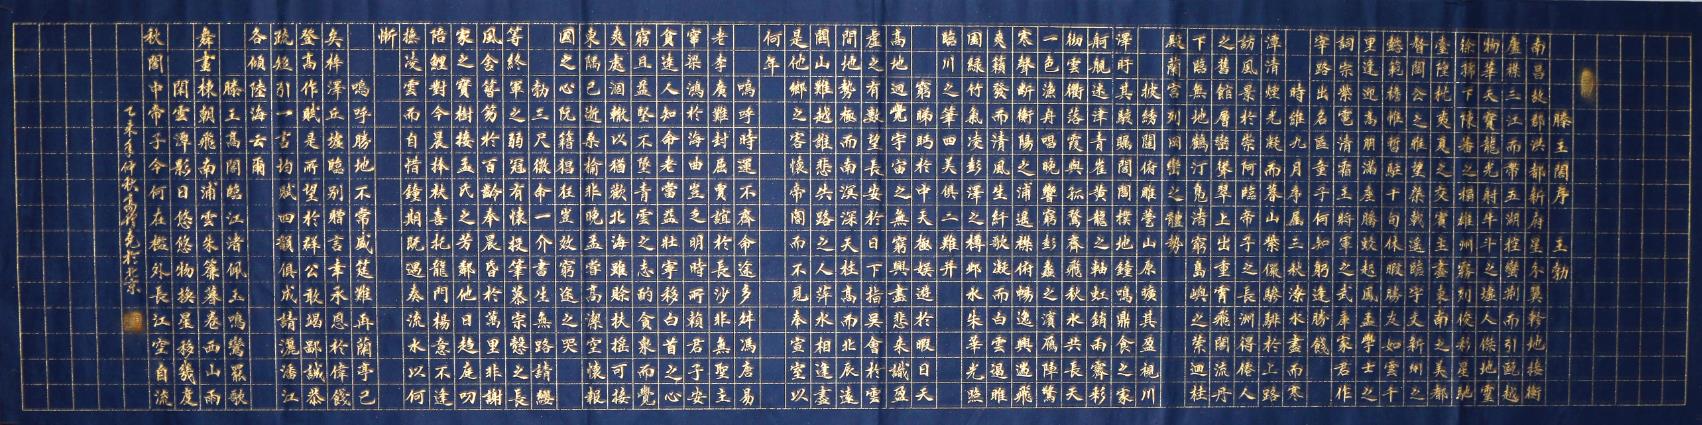 滕王閣序 王勃
南昌故郡洪都新府星分翼軫地接衡
廬襟三江而帶五湖控蠻荊而引甌越
物華天寶龍光射牛斗之墟人傑地靈
徐孺下陳蕃之榻雄州霧列俊彩星馳
臺隍枕夷夏之交賓主盡東南之美都
督閻公之雅望棨戟遙臨宇文新州之
懿範襜帷暫駐十旬休暇勝友如雲千
里逢迎高朋滿座騰蛟起鳳孟學士之
詞宗紫電清霜王將軍之武庫家君作
宰路出名區童子何知躬逢勝餞
時維九月序屬三秋潦水盡而寒
潭清煙光凝而暮山紫儼驂騑於上路
訪風景於崇阿臨帝子之長洲得僊人
之舊館層巒聳翠上出重霄飛閣流丹
下臨無地鶴汀鳧渚窮島嶼之縈迴桂
殿蘭宮列岡巒之體勢
披繡闥俯雕甍山原曠其盈視川
澤盱其駭矚閭閻撲地鐘鳴鼎食之家
舸艦迷津青雀黃龍之軸虹銷雨霽彩
徹雲衢落霞與孤鶩齊飛秋水共長天
一色漁舟唱晚響窮彭蠡之濱雁陣驚
寒聲斷衡陽之浦遙襟俯暢逸興遄飛
爽籟發而清風生纖歌凝而白雲遏睢
園綠竹氣凌彭澤之樽鄴水朱華光照
臨川之筆四美俱二難并
窮睇眄於中天極娛遊於暇日天
高地迥覺宇宙之無窮興盡悲來識盈
虛之有數望長安於日下指吳會於雲
間地勢極而南溟深天柱高而北辰遠
關山難越誰悲失路之人萍水相逢盡
是他鄉之客懷帝閽而不見奉宣室以
何年
嗚呼時運不齊命途多舛馮唐易
老李廣難封屈賈誼於長沙非無聖主
竄梁鴻於海曲豈乏明時所賴君子安
貧達人知命老當益壯寧移白首之心
窮且益堅不墜青雲之志酌貪泉而覺
爽處涸轍以猶歡北海雖賒扶搖可接
東隅已逝桑榆非晚孟嘗高潔空懷報
國之心阮籍猖狂豈效窮途之哭
勃三尺微命一介書生無路請纓
等終軍之弱冠有懷投筆慕宗慤之長
風舍簪笏於百齡奉晨昏於萬里非謝
家之寶樹接孟氏之芳鄰他日趨庭叨
陪鯉對今晨捧袂喜托龍門楊意不逢
撫凌雲而自惜鐘期既遇奏流水以何
慚
嗚呼勝地不常盛筵難再蘭亭已
矣梓澤丘墟臨別贈言幸承恩於偉餞
登高作賦是所望於群公敢竭鄙誠恭
疏短引一言均賦四韻俱成請灑潘江
各傾陸海云爾
滕王高閣臨江渚佩玉鳴鸞罷歌
舞畫棟朝飛南浦雲朱簾暮卷西山雨
閑雲潭影日悠悠物換星移幾度
秋閣中帝子今何在檻外長江空自流
乙未年仲秋 於北京